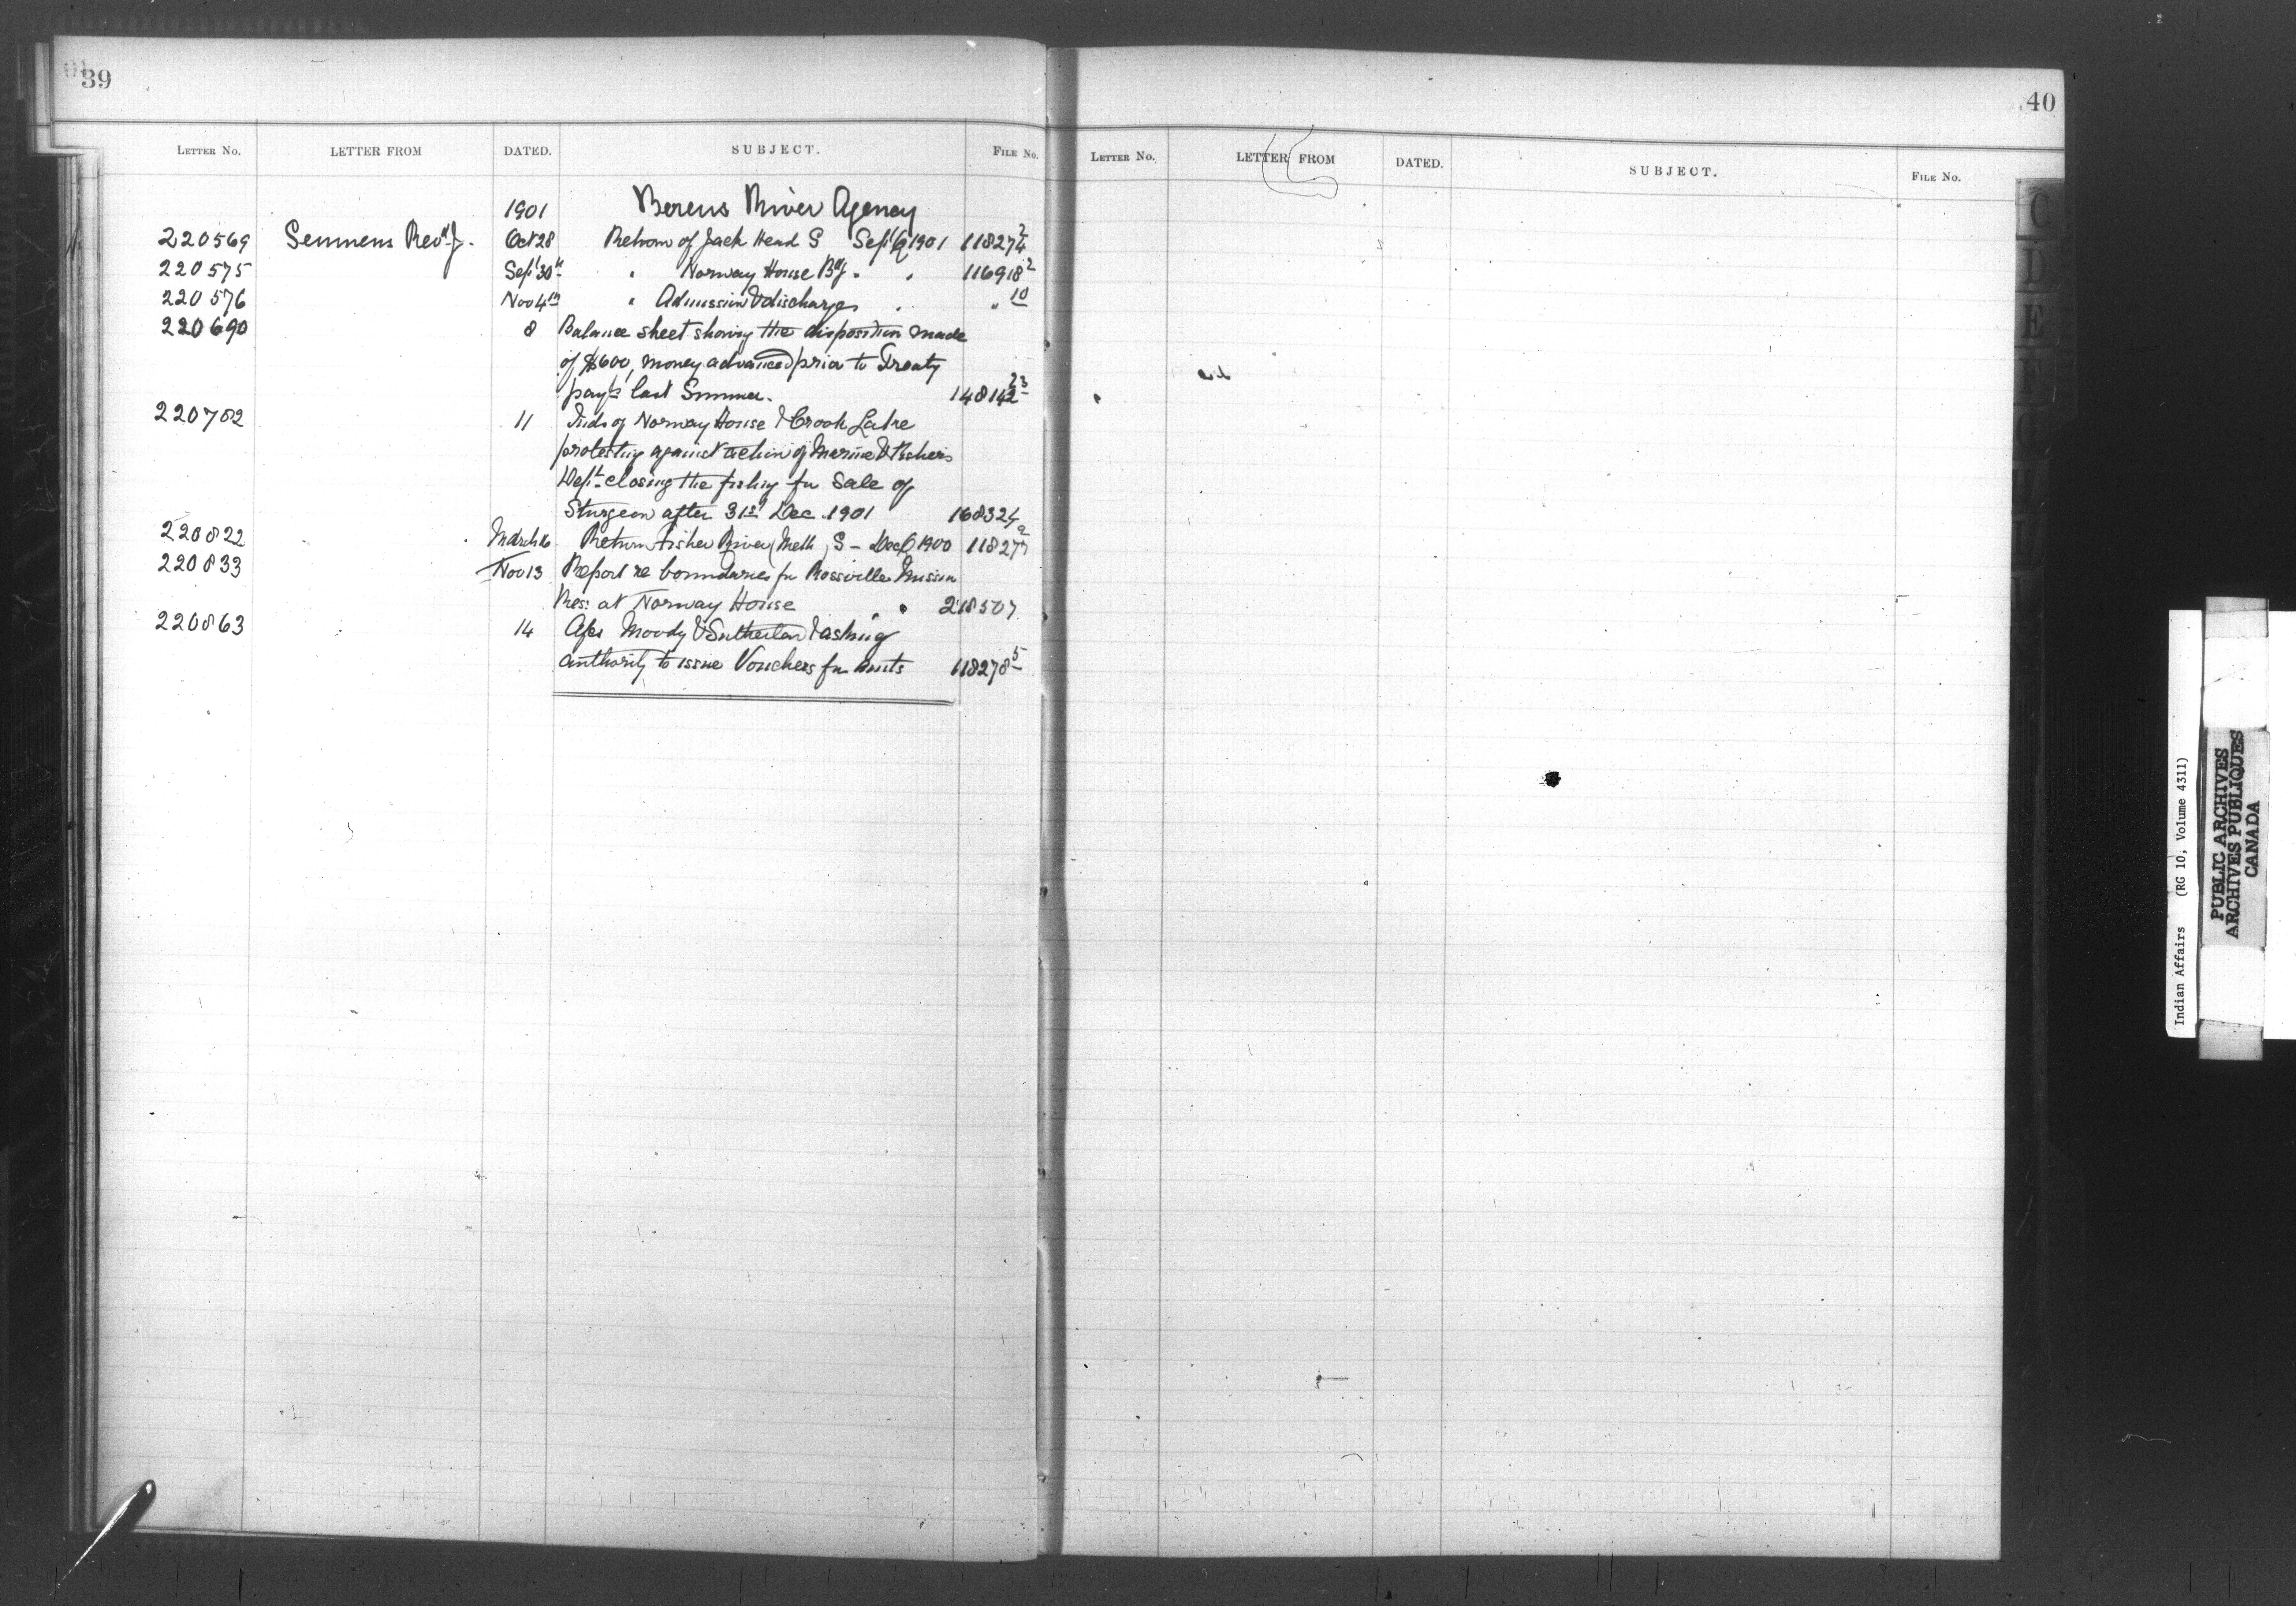 39
LETTER No. LETTER FROM DATED. SUBJECT. FILE No.
1901 Berens River Agency
220569 Semmens Revd. J. Oct 28 Return of Jack Head S Sept Q 1901 118274 2
220575 Sept 30th " Norway House Bdg " " 116918 2
220576 Nov 4th " Admission & discharge " " 10
220690 8 Balance sheet showing the disposition made
of $600, money advanced prior to Treaty
payts last Summer. 148142 23
220782 11 Inds of Norway House & Crook Lake
protesting against action of Marine & Fisheris
Dept closing the fishing for Sale of
Sturgeon after 31st Dec. 1901 168324
220822 March 16 Return Fisher River (Meth) S - Dec Q 1900 118277 a
220833 Nov 13 Report re boundaries for Rossville Mission
Res: at Norway House " " 218507
220863 14 Aps Moody & Sutherland asking
authority to issue Vouchers for amts 118278 5
40
LETTER No. LETTER FROM DATED. SUBJECT. FILE No.
C
D
E
F
G
Indian Affairs (RG 10, Volume 4311)
PUBLIC ARCHIVES
ARCHIVES PUBLIQUES
CANADA